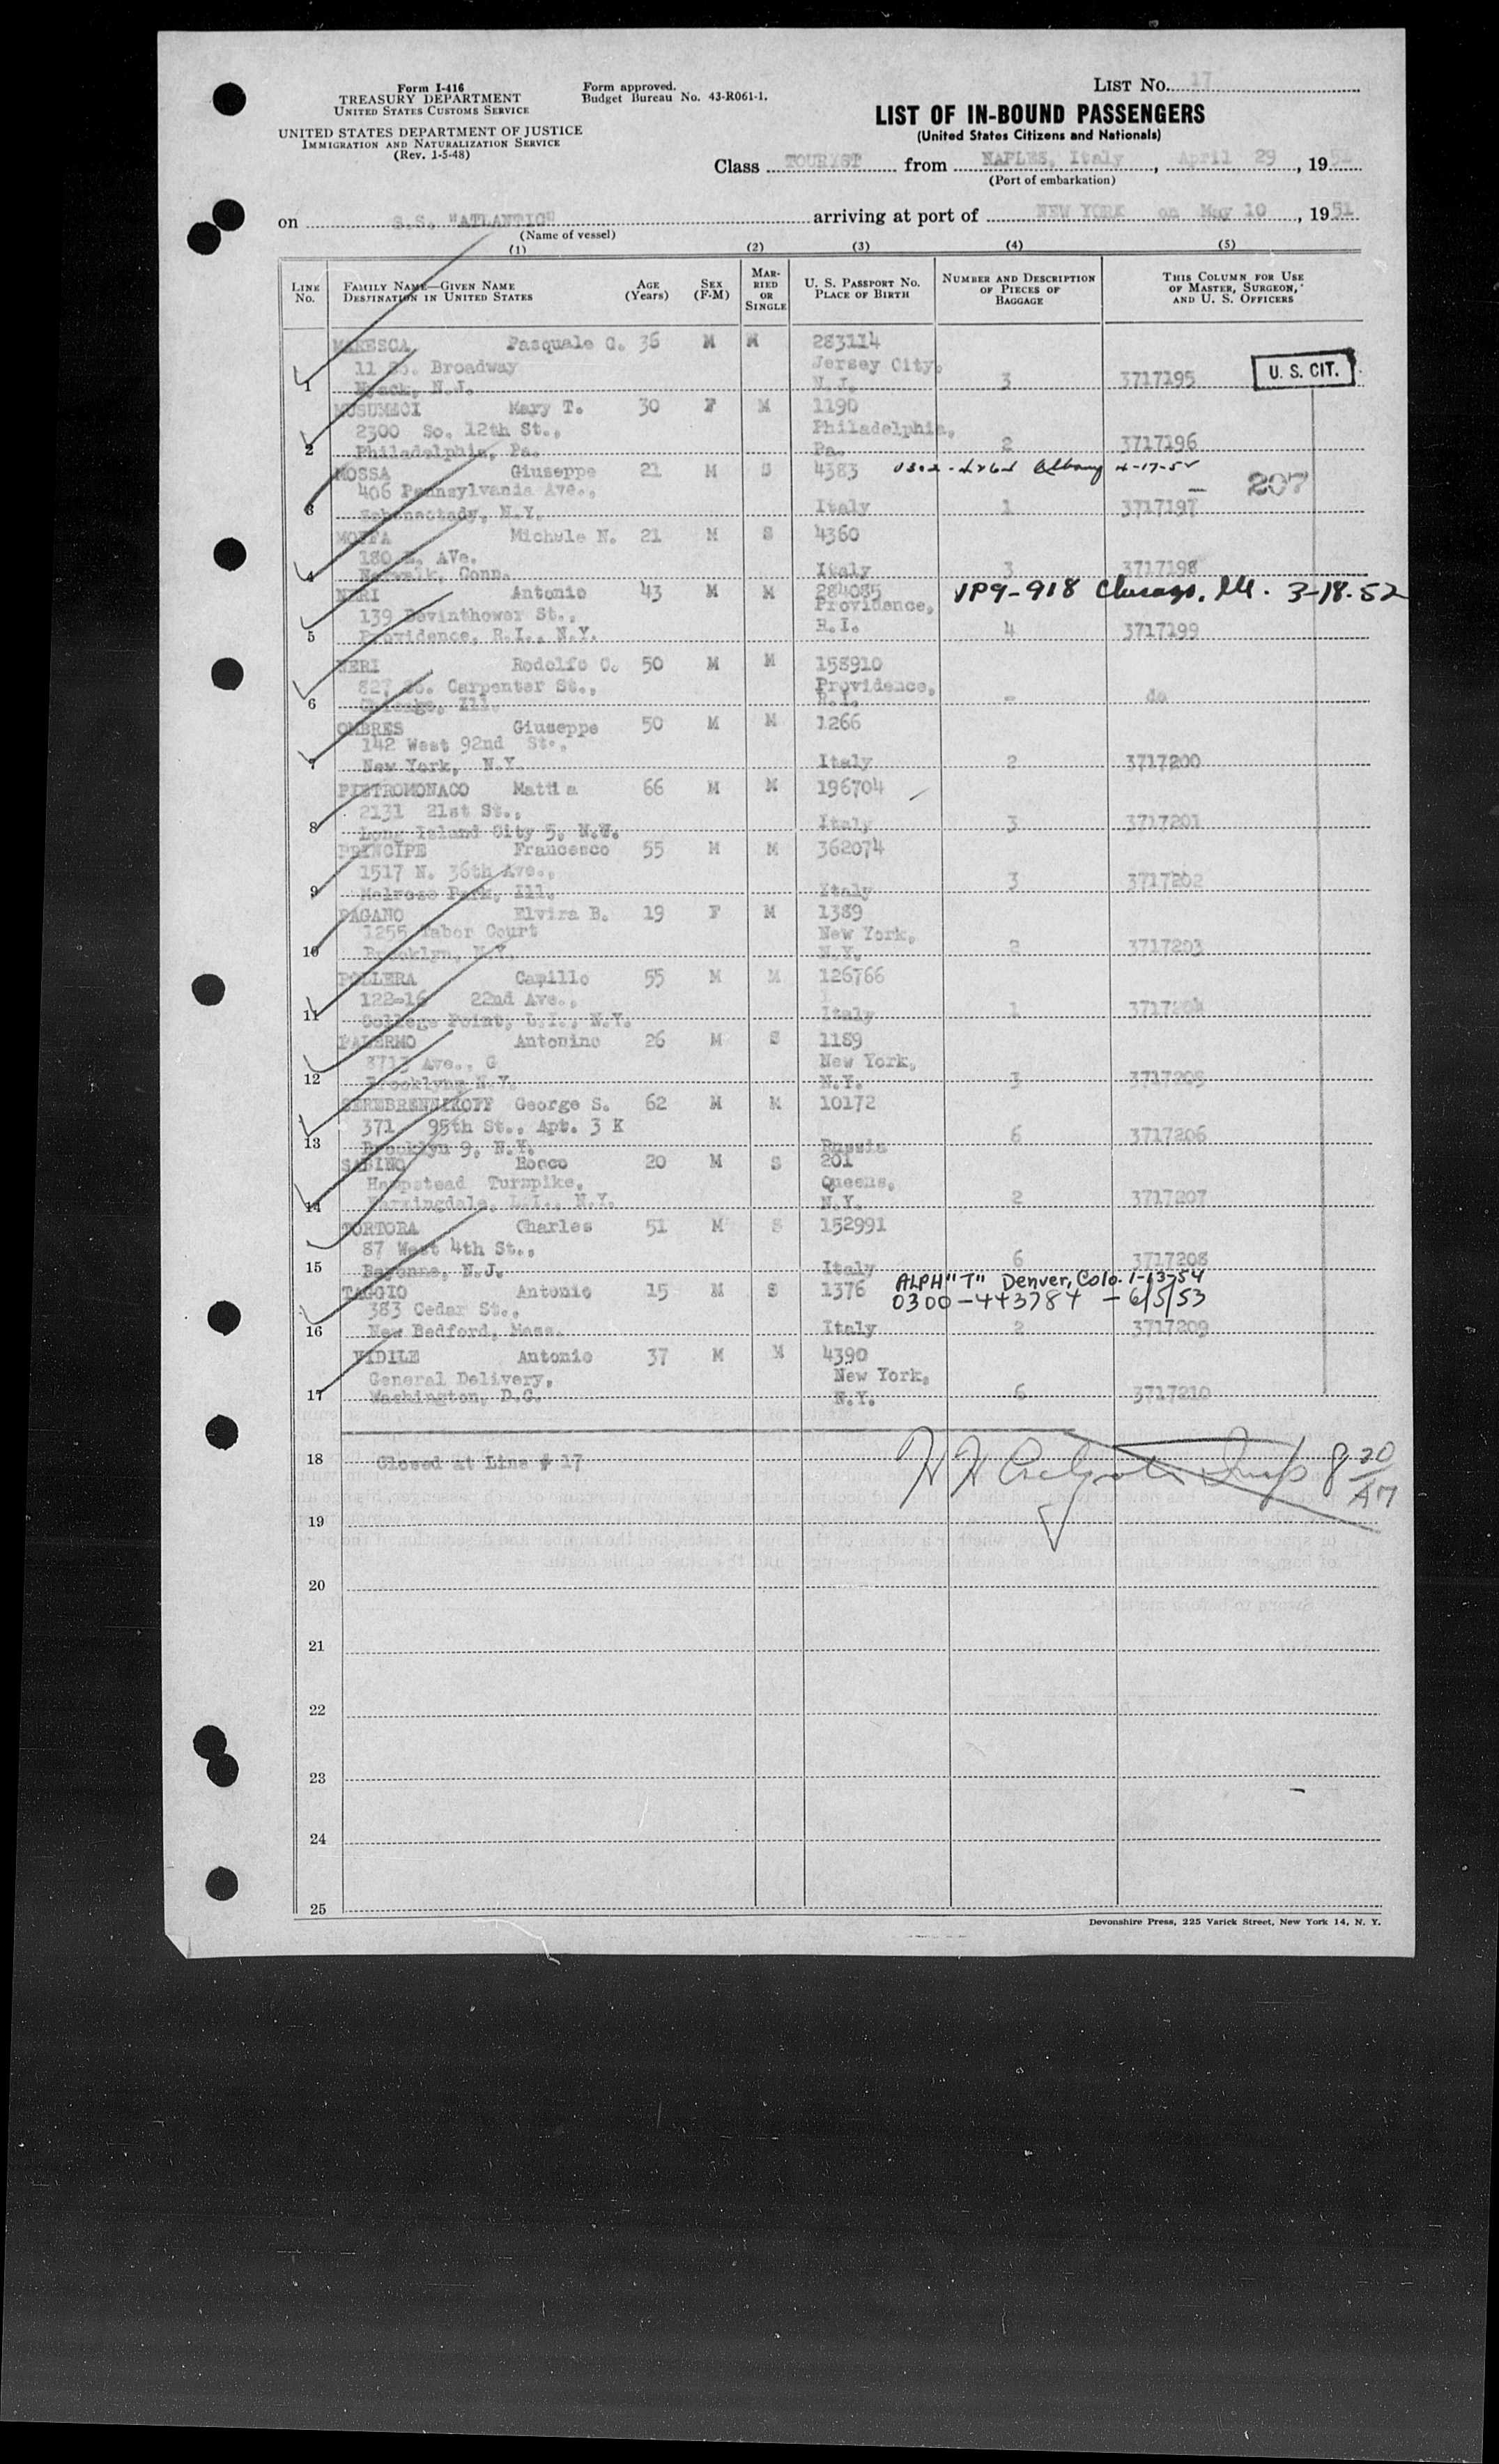 Form I-416
TREASURY DEPARTMENT
UNITED STATES CUSTOMS SERVICE
UNITED STATES DEPARTMENT OF JUSTICE
IMMIGRATION AND NATURALIZATION SERVICE
(Rev. 1-5-48)
Form approved.
Budget Bureau No. 43-R061-1.
LIST NO. 17
LIST OF IN-BOUND PASSENGERS
(United States Citizens and Nationals)
Class TOURIST from NAPLES, Italy, April 29, 1951
(Port of embarkation)
on S.S. "ATLANTIC" arriving at port of NEW YORK on May 10, 1951
(Name of vessel)
(1) (2) (3) (4) (5)
LINE NO. FAMILY NAME—GIVEN NAME DESTINATION IN UNITED STATES AGE (Years) SEX (F-M) MARRIED OR SINGLE U. S. PASSPORT NO. PLACE OF BIRTH NUMBER AND DESCRIPTION OF PIECES OF BAGGAGE THIS COLUMN FOR USE OF MASTER, SURGEON, AND U. S. OFFICERS
MARESCA Pasquale C. 36 M M 283114
11 So. Broadway Jersey City,
1 Nyack, N.J. N.J. 3 3717195 U. S. CIT.
MUSUMECI Mary T. 30 F M 1190
2300 So. 12th St., Philadelphia,
2 Philadelphia, Pa. Pa. 2 3717196
MOSSA Giuseppe 21 M S 4383 Albany 4-17-52
406 Pennsylvania Ave., 207
3 Schenectady, N.Y. Italy 1 3717197
MOFFA Michele N. 21 M S 4360
180 Ave.
4 Norwalk, Conn. Italy 3 3717198
NERI Antonio 43 M M 284085 VP9-918 Chicago, Ill. 3-18-52
139 St., Providence,
5 Providence, R.I., N.Y. R.I. 4 3717199
NERI Rodolfo C. 50 M M 158910
827 So. Carpenter St., Providence,
6 Chicago, Ill. R.I. - do
OMBRES Giuseppe 50 M M 1266
142 West 92nd St.,
7 New York, N.Y. Italy 2 3717200
PIETROMONACO Mattia 66 M M 196704
2131 21st St.,
8 Long Island City 5, N.Y. Italy 3 3717201
PRINCIPE Francesco 55 M M 362074
1517 N. 36th Ave.,
9 Melrose Park, Ill. Italy 3 3717202
PAGANO Elvira B. 19 F M 1389
1255 Tabor Court New York,
10 Brooklyn, N.Y. N.Y. 2 3717203
POLLERA Camillo 55 M M 126766
122-16 22nd Ave.,
11 College Point, L.I., N.Y. Italy 1 3717204
PALERMO Antonino 26 M S 1189
3713 Ave., G New York,
12 Brooklyn, N.Y. N.Y. 3 3717205
SEREBRENNIKOFF George S. 62 M M 10172
371 95th St., Apt. 3 K
13 Brooklyn 9, N.Y. Russia 6 3717206
SABINO Rocco 20 M S 201
Hempstead Turnpike, Queens,
14 Farmingdale, L.I., N.Y. N.Y. 2 3717207
TORTORA Charles 51 M S 152991
87 West 4th St.,
15 Bayonne, N.J. Italy 6 3717208
TAGGIO Antonio 15 M S 1376 ALPH "T" Denver, Colo. 1-13-54
383 Cedar St., 0300-443784 - 6/5/53
16 New Bedford, Mass. Italy 2 3717209
VIDILE Antonio 37 M M 4390
General Delivery, New York,
17 Washington, D.C. N.Y. 6 3717210
18 Closed at Line # 17
19
20
21
22
23
24
25
Devonshire Press, 225 Varick Street, New York 14, N. Y.